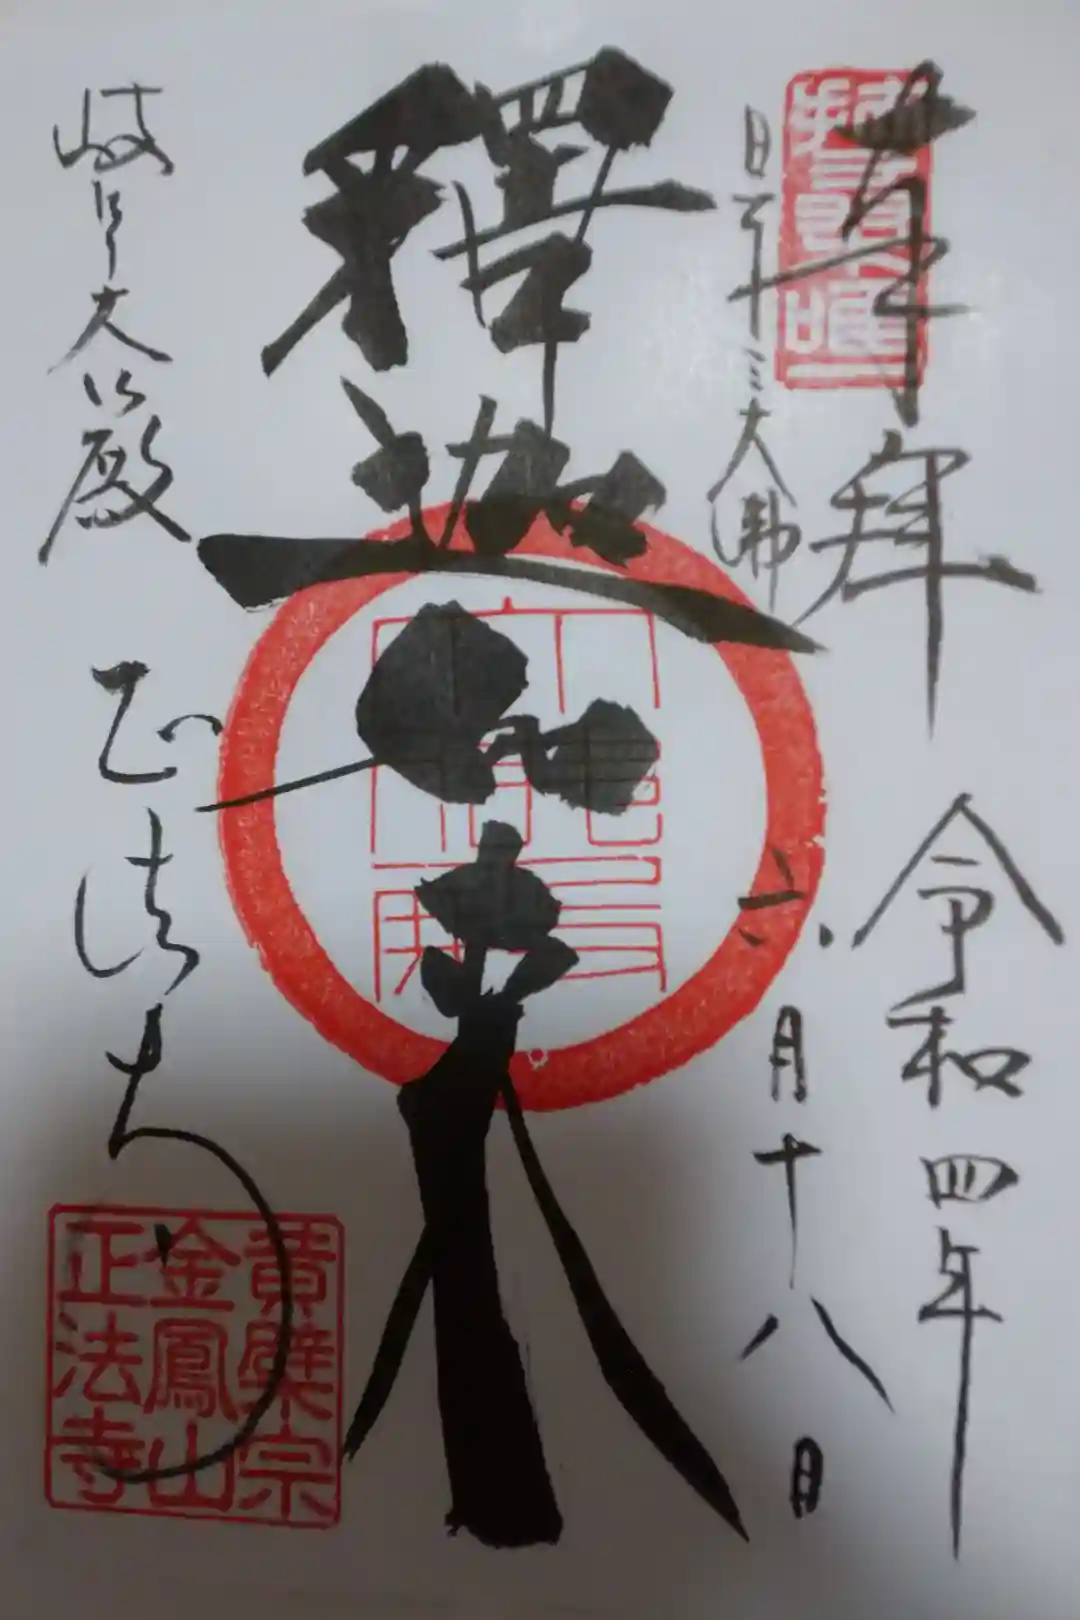 奉拝
令和四年
六月十八日
日本三大佛
釋迦如来
岐阜大仏殿
正法寺
黄檗宗
金鳳山
正法寺